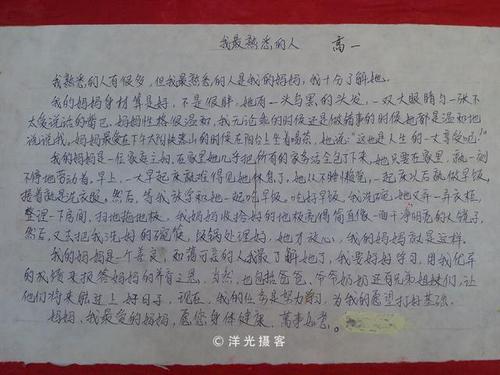 我最熟悉的人 高一
我熟悉的人有很多,但我最熟悉的人是我的妈妈,我十分了解她。
我的妈妈身材算是好,不是很胖,她有一头乌黑的头发,一双大眼睛与一张不
太爱说话的嘴巴,妈妈性格很温和,我无论乖的时候还是做错事的时候她都是温和地
说说我。妈妈最爱在下午太阳快落山的时候在阳台上坐着喝茶,她说:"这也是人生的一大享受吧!"
我的妈妈是一位家庭主妇,在家里她几乎把所有的家务活全包了下来,她只要在家里,就一刻
不停地劳动着,早上,一大早起床就难得见她休息了,她从不睡懒觉,一起床以后就做早饭,
接着就是洗衣服。然后,等我放学和她一起吃早饭,吃好早饭,我洗碗,她又弄一弄衣柜,
整理一下房间,扫地拖地板,我妈妈收拾好的地板亮得简直像一面干净明亮的大镜子,
然后,又去把我洗好的碗筷,饭锅处理好,她才放心,我的妈妈就是这样。
我的妈妈是一个善良,和蔼可亲的人我最了解她了,我要好好学习,用我优异
的成绩来报答妈妈的养育之恩,当然,也包括爸爸,爷爷奶奶还有兄弟姐妹们,让
他们将来能过上好日子,现在,我的任务是努力学习,为我的愿望打好基础。
妈妈,我最爱的妈妈,愿您身体健康,万事如意。
© 洋光摄客